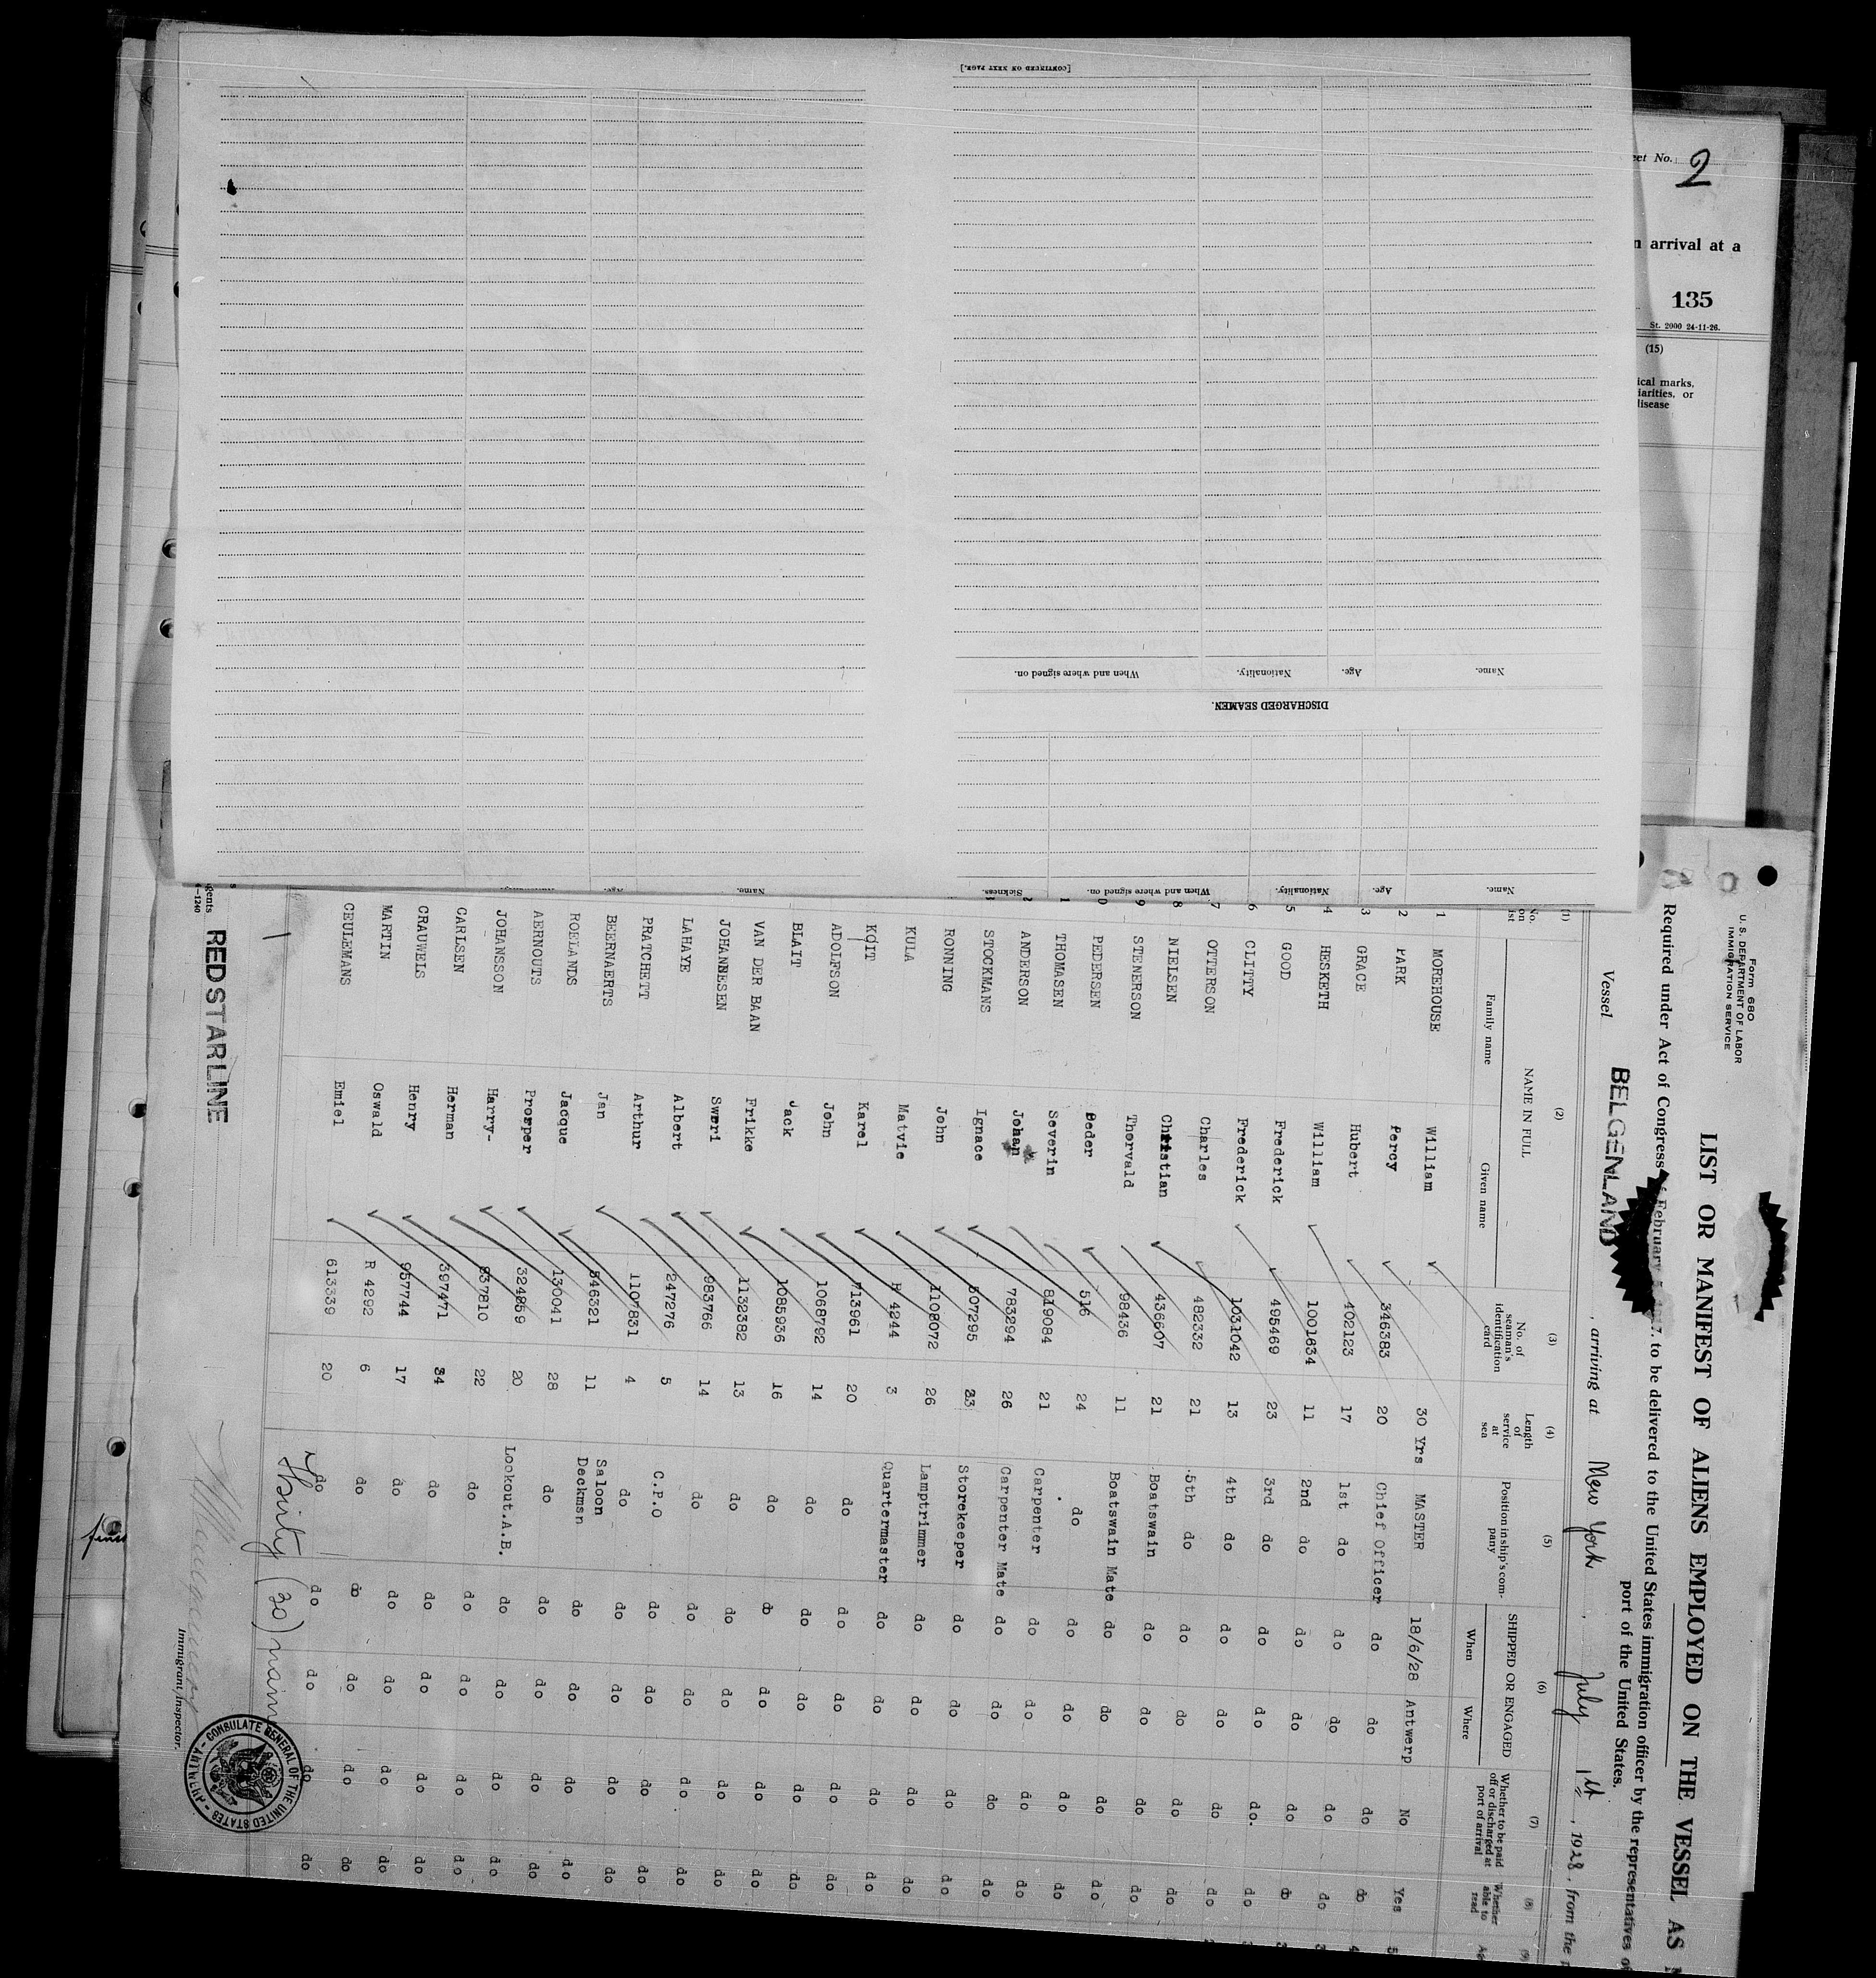 [CONTINUED ON NEXT PAGE.]
Name. Age. Nationality. When and where signed on.
DISCHARGED SEAMEN.
Name. Age. Nationality. When and where signed on. Sickness.
Name. Age.
eet No. 2
n arrival at a
135
St. 2000 24-11-26.
(15)
ical marks,
iarities, or
disease
Form 680
U.S. DEPARTMENT OF LABOR
IMMIGRATION SERVICE
LIST OR MANIFEST OF ALIENS EMPLOYED ON THE VESSEL AS
Required under Act of Congress of February 5, 1917, to be delivered to the United States immigration officer by the representatives of
port of the United States.
Vessel BELGENLAND, arriving at New York, July 1st, 1928, from the
(1) (2) (3) (4) (5) (6) (7) (8) (9)
No. on list NAME IN FULL Family name Given name No. of seaman's identification card Length of service at sea Position in ship's company SHIPPED OR ENGAGED When Where Whether to be paid off or discharged at port of arrival Whether able to read
1 MOREHOUSE William 30 Yrs MASTER 18/6/28 Antwerp No Yes
2 PARK Percy 346383 20 Chief Officer do do do do
3 GRACE Hubert 402123 17 1st do do do do do
4 HESKETH William 1001634 11 2nd do do do do do
5 GOOD Frederick 495469 23 3rd do do do do do
6 CLITTY Frederick 1031042 13 4th do do do do. do
7 OTTERSON Charles 482332 21 5th do do do do do
8 NIELSEN Christian 436607 21 Boatswain do do do do
9 STENERSON Thorvald 98436 11 Boatswain Mate do do do do
0 PEDERSEN Peder 516 24 do do do do do
1 THOMASEN Severin 819084 21 Carpenter do do do do
2 ANDERSON Johan 783294 26 Carpenter Mate do do do do
STOCKMANS Ignace 507295 23 Storekeeper do do do do
RONNING John 1108072 26 Lamptrimmer do do do do
KULA Matvie R 4244 3 Quartermaster do do do do
KOIT Karel 713961 20 do do do do do
ADOLFSON John 1068792 14 do do do do do
BLAIT Jack 1085936 16 do do do do do
VAN DER BAAN Frikke 1132382 13 do do do do do
JOHANNESEN Sweri 983766 14 do do do do do
LAHAYE Albert 247276 5 C.P.O do do do do
PRATCHETT Arthur 1107831 4 do do do do do
BEERNAERTS Jan 546321 11 Saloon Deckman do do do do
ROELANDS Jacque 130041 28 do do do do do
AERNOUTS Prosper 324859 20 Lookout.A.B. do do do do
JOHANSSON Harry- 837810 22 do do do do do
CARLSEN Herman 397471 34 do do do do do
CRAUWELS Henry 957744 17 do do do do do
MARTIN Oswald R 4292 6 do do do do do
CEULEMANS Emiel 613339 20 do do do do do
Thirty (30) names
gents
-1240
RED STAR LINE
Immigrant Inspector.
CONSULATE GENERAL OF THE UNITED STATES - ANTWERP -